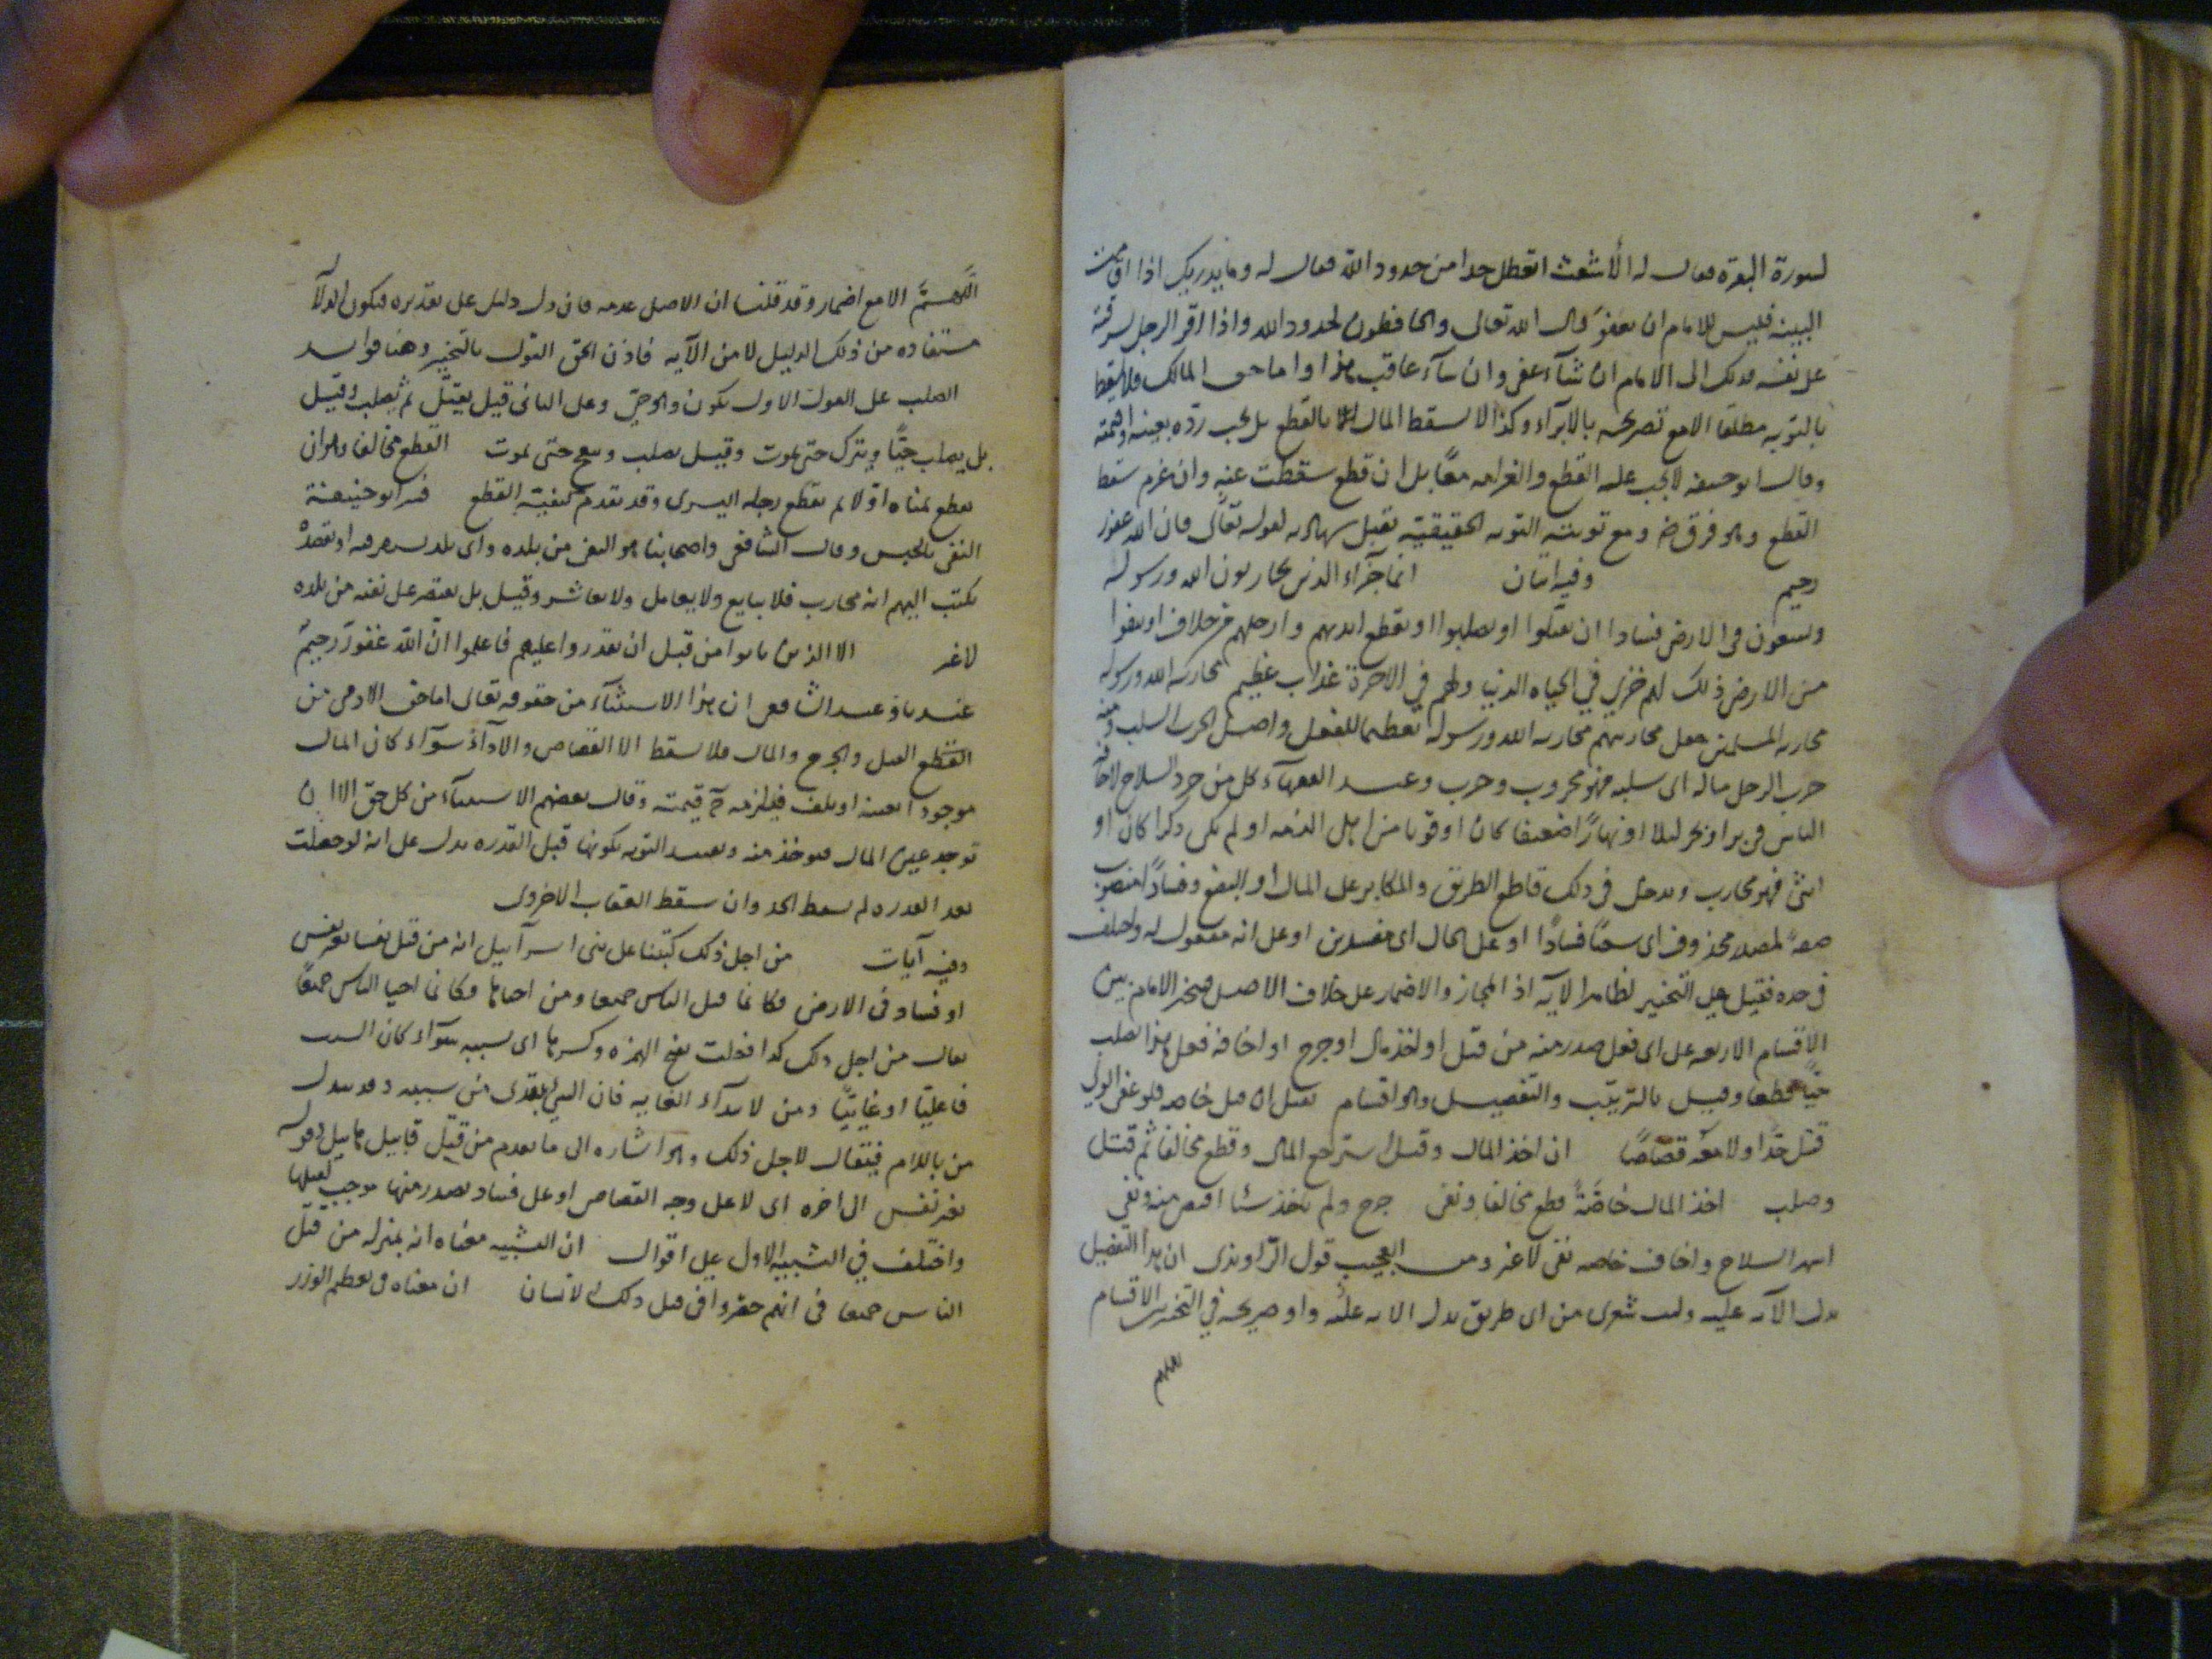 لسورة البقرة فقال له الأشعث اتعطل حدا من حدود الله فقال له وما يدريك اذا اقامت
البينة فليس للامام ان يعفو قال الله تعالى والحافظون لحدود الله واذا اقر الرجل بسرقة
على نفسه فذلك الى الامام ان شآء عفى وان شآء عاقب هذا واما حق المالك فلا يسقط
بالتوبه مطلقا الا مع تصريحه بالابرآء وكذا لا يسقط المال بالقطع بل يجب رده بعينه او قيمته
وقال ابو حنيفه لا يجب عليه القطع والغرامه معًا بل ان قطع سقطت عنه وان غرم سقط
القطع وهو فرق ومع توبته التوبه الحقيقية تقبل شهادته لقوله تعالى فان الله غفور
رحيم وفيه ايتان انما جزآء الذين يحاربون الله ورسوله
ويسعون فى الارض فسادا ان يقتلوا او يصلبوا او تقطع ايديهم وارجلهم من خلاف او ينفوا
من الارض ذلك لهم خزي في الحياه الدنيا ولهم في الاخرة عذاب عظيم محاربه الله ورسوله
محاربه المسلمين جعل محاربتهم محاربه الله ورسوله تعظيما للفعل واصل الحرب السلب ومنه
حرب الرجل ماله اى سلبه فهو محروب وحرب وعند الفقهآء كل من جرد السلاح لاخافة
الناس فى بر او بحر ليلا او نهارًا ضعيفا كان او قويا من اهل الذمه او لم يكن ذكرا كان او
انثى فهو محارب ويدخل فى ذلك قاطع الطريق والمكابر على المال او البضع وفسادًا منصوب
صفةً لمصدر محذوف اى سعيًا فسادًا او على الحال اى مفسدين او على انه مفعول له واختلف
فى حده فقيل هي التخيير لظاهر الآيه اذ المجاز والاضمار على خلاف الاصل فيتخير الامام بين
الاقسام الاربعه على اى فعل صدر منه من قتل او اخذ مال او جرح او اخافة فعلى هذا يصلب
حيًا قطعا وقيل بالترتيب والتفصيل وهو اقسام يقتل ان قتل خاصه فلو عفى الولي
قتل حدًا ولا معه قصاصًا ان اخذ المال وقتل استرجع المال وقطع مخالفا ثم قتل
وصلب اخذ المال خاصَّةً قطع مخالفا ونفى جرح ولم ياخذ شيئا اقتص منه ونفى
اشهر السلاح واخاف خاصه نفى لا غير ومن العجيب قول الراوندى ان هذا التفصيل
يدل الآيه عليه وليت شعرى من اى طريق يدل الايه عليه واو صريحه في التخيير الاقسام
اللهم
اللَّهمَّ الا مع اضمار وقد قلنا ان الاصل عدمه فان دل دليل على تقديره فيكون الدلالة
مستفاده من ذلك الدليل لا من الآيه فاذن الحق القول بالتخيير وهنا فوايد
الصلب على القول الاول يكون وهو حيّ وعلى الثانى قيل يقتل ثم يصلب وقيل
بل يصلب حيًّا ويترك حتى يموت وقيل يصلب ويبعج حتى يموت القطع مخالفا وهو ان
يقطع يمناه اولا ثم يقطع رجله اليسرى وقد تقدم كيفية القطع فسر ابو حنيفة
النفى بالحبس وقال الشافعى واصحابنا هو النفى من بلده واى بلد استقر فيه او قصده
يكتب اليهم انه محارب فلا يبايع ولا يعامل ولا يعاشر وقيل بل يقتصر على نفيه من بلده
لا غير الا الذين تابوا من قبل ان تقدروا عليهم فاعلموا ان الله غفور رحيم
عندنا وعند الشافعى ان هذا الاستثنآء من حقوقه تعالى اما حق الادمى من
القطع القتل والجرح والمال فلا يسقط الا القصاص والادآء سوآء كان المال
موجودا بعينه او تلف فيلزمه ح قيمته وقال بعضهم الاستثنآء من كل حق الا ان
توجد عين المال فيوخذ منه وتقييد التوبه بكونها قبل القدره يدل على انه لو حصلت
بعد القدره لم يسقط الحد وان سقط العقاب الاخروى
وفيه آيات من اجل ذلك كتبنا على بنى اسرآئيل انه من قتل نفسا بغير نفس
او فساد فى الارض فكانما قتل الناس جميعا ومن احياها فكانما احيا الناس جميعًا
يقال من اجل ذلك كذا فعلت بفتح الهمزه وكسرها اى بسببه سوآء كان السبب
فاعليًا او غائيًا ومن لابتدآء الغايه فان الشيء يبتدى من سببه وقد يبدل
من باللام فيقال لاجل ذلك وهو اشاره الى ما تقدم من قتل قابيل هابيل وقوله
بغير نفس الى اخره اى لا على وجه القصاص او على فساد يصدر منها موجب لقتلها
واختلف في التشبيه الاول على اقوال ان التشبيه معناه انه بمنزله من قتل
الناس جميعا فى انهم خصوا فى قتل ذلك الانسان ان معناه فى تعظيم الوزر